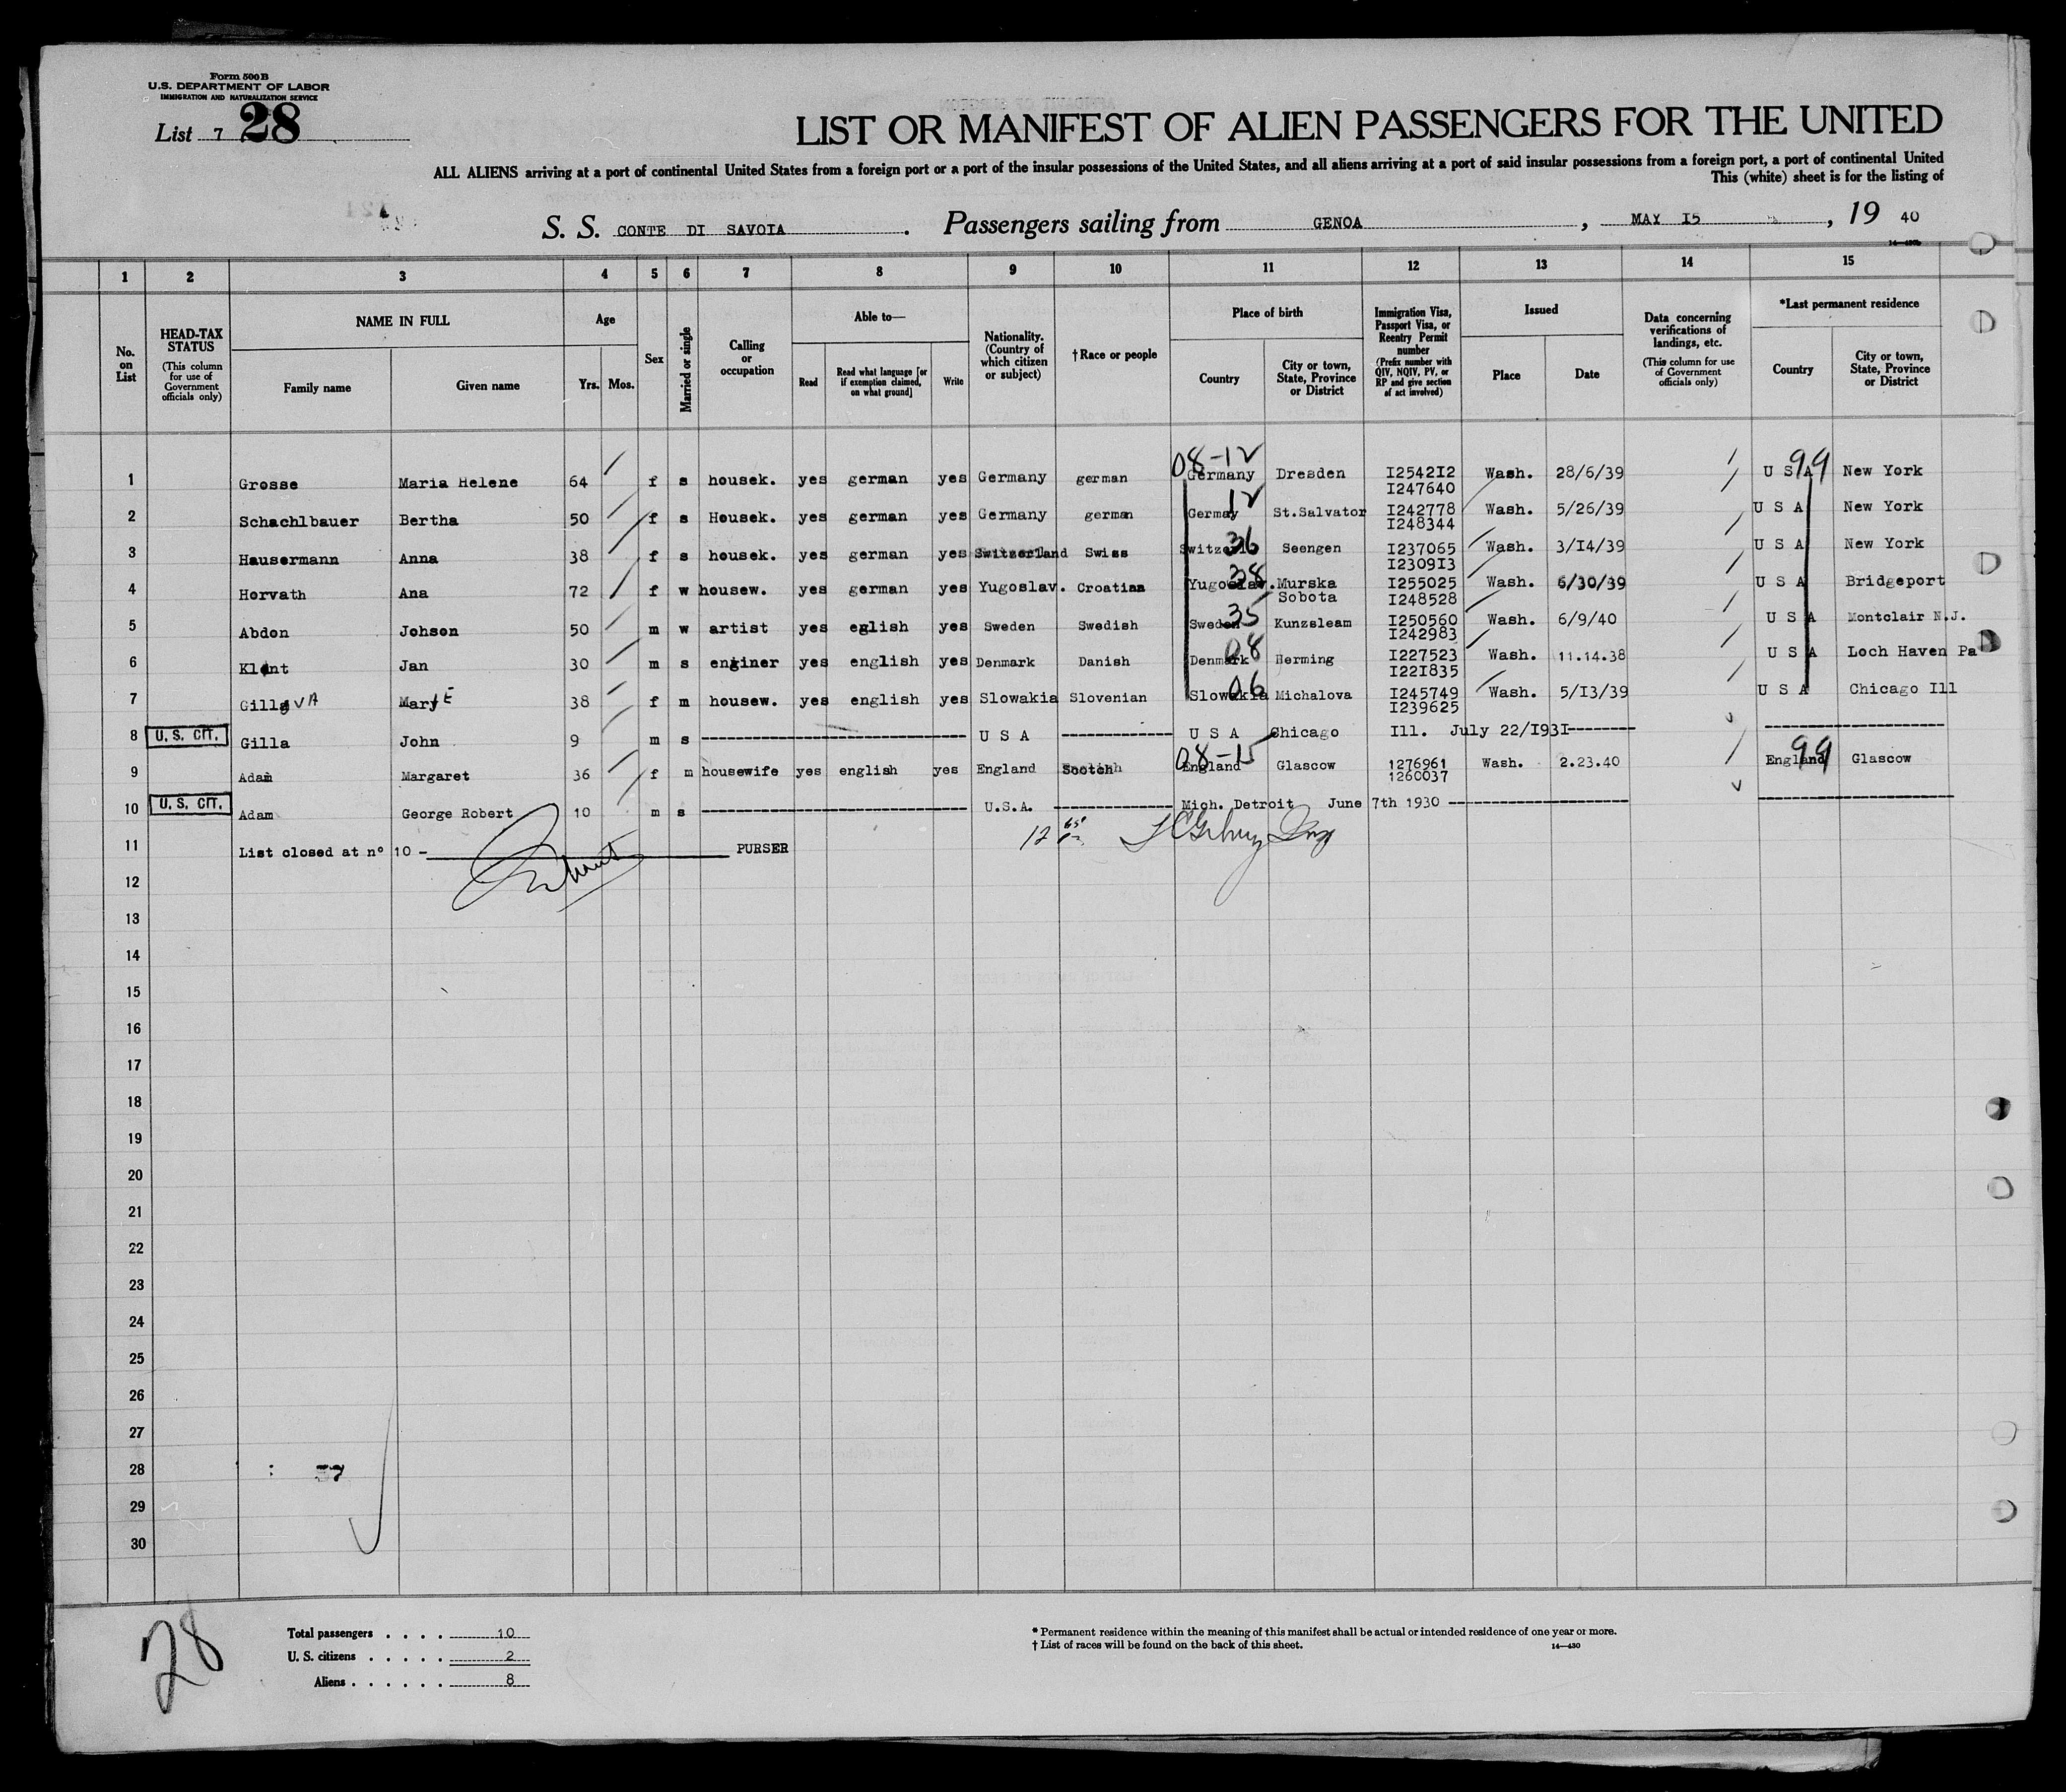 Form 500 B
U.S. DEPARTMENT OF LABOR
IMMIGRATION AND NATURALIZATION SERVICE
List 7 28
LIST OR MANIFEST OF ALIEN PASSENGERS FOR THE UNITED
ALL ALIENS arriving at a port of continental United States from a foreign port or a port of the insular possessions of the United States, and all aliens arriving at a port of said insular possessions from a foreign port, a port of continental United
This (white) sheet is for the listing of
S. S. CONTE DI SAVOIA . Passengers sailing from GENOA , MAY I5 , 19 40
1 2 3 4 5 6 7 8 9 10 11 12 13 14 15
No. on List
HEAD-TAX STATUS
(This column for use of Government officials only)
NAME IN FULL
Family name
Given name
Age
Yrs. Mos.
Sex
Married or single
Calling or occupation
Able to—
Read
Read what language [or if exemption claimed, on what ground]
Write
Nationality. (Country of which citizen or subject)
†Race or people
Place of birth
Country
City or town, State, Province or District
Immigration Visa, Passport Visa, or Reentry Permit number
(Prefix number with QIV, NQIV, PV, or RP and give section of act involved)
Issued
Place
Date
Data concerning verifications of landings, etc.
(This column for use of Government officials only)
*Last permanent residence
Country
City or town, State, Province or District
08-12 99
1 Grosse Maria Helene 64 f s housek. yes german yes Germany german Germany Dresden I2542I2 Wash. 28/6/39 U S A New York
I247640
12
2 Schachlbauer Bertha 50 f s Housek. yes german yes Germany german Germay St.Salvator I242778 Wash. 5/26/39 U S A New York
I248344
36
3 Hausermann Anna 38 f s housek. yes german yes Switzerland Swiss Seengen I237065 Wash. 3/I4/39 U S A New York
I2309I3
38
4 Horvath Ana 72 f w housew. yes german yes Yugoslav. Croatian Yugoslav. Murska I255025 Wash. 6/30/39 U S A Bridgeport
Sobota I248528
35
5 Abdon Johson 50 m w artist yes eglish yes Sweden Swedish Sweden Kunzsleam I250560 Wash. 6/9/40 U S A Montclair N.J.
I242983
08
6 Jan 30 m s enginer yes english yes Denmark Danish Denmark Herming I227523 Wash. 11.14.38 U S A Loch Haven Pa
I22I835
06
7 Mary E 38 f m housew. yes english yes Slowakia Slovenian Slowakia Michalova I245749 Wash. 5/I3/39 U S A Chicago Ill
I239625
8 U. S. CIT. Gilla John 9 m s U S A U S A Chicago Ill. July 22/I93I
08-15 99
9 Adam Margaret 36 f m housewife yes english yes England Scotch England Glascow 1276961 Wash. 2.23.40 England Glascow
1260037
10 U. S. CIT. Adam George Robert 10 m s U.S.A. Mich. Detroit June 7th 1930
11 List closed at n° 10 - PURSER
12
13
14
15
16
17
18
19
20
21
22
23
24
25
26
27
28
29
30
28
Total passengers . . . . 10
U. S. citizens . . . . . 2
Aliens . . . . . . 8
* Permanent residence within the meaning of this manifest shall be actual or intended residence of one year or more.
† List of races will be found on the back of this sheet.
14—430